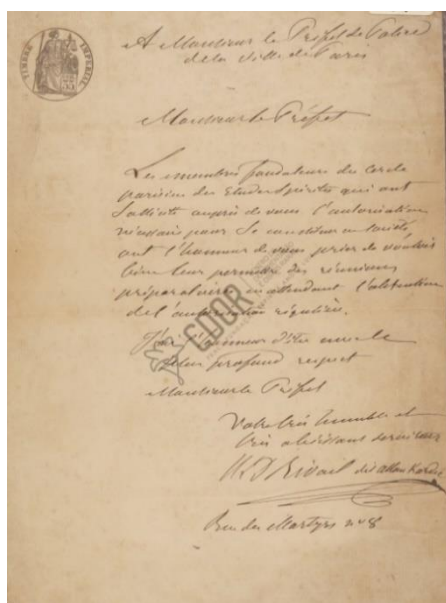 A Monsieur le Préfet de Police
de la Ville de Paris
TIMBRE IMPERIAL
35
Monsieur le Préfet
Les membres fondateurs du Cercle
parisien des Etudes Spirites qui ont
Sollicité auprès de vous l'autorisation
nécessaire pour Se constituer en Société,
ont l'honneur de vous prier de vouloir
bien leur permettre des réunions
préparatoires en attendant l'obtention
de l'autorisation régulière.
J'ai l'honneur d'être avec le
plus profond respect
Monsieur le Préfet
Votre très humble et
très obéissant serviteur
H. L. D. Rivail dit Allan Kardec
Rue des Martyrs n° 8
CDOR